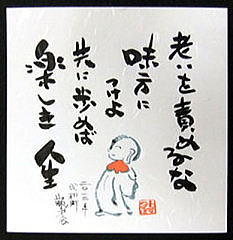 老いを責めるな
味方に
つけよ
共に歩めば
楽しき人生
二〇一二年